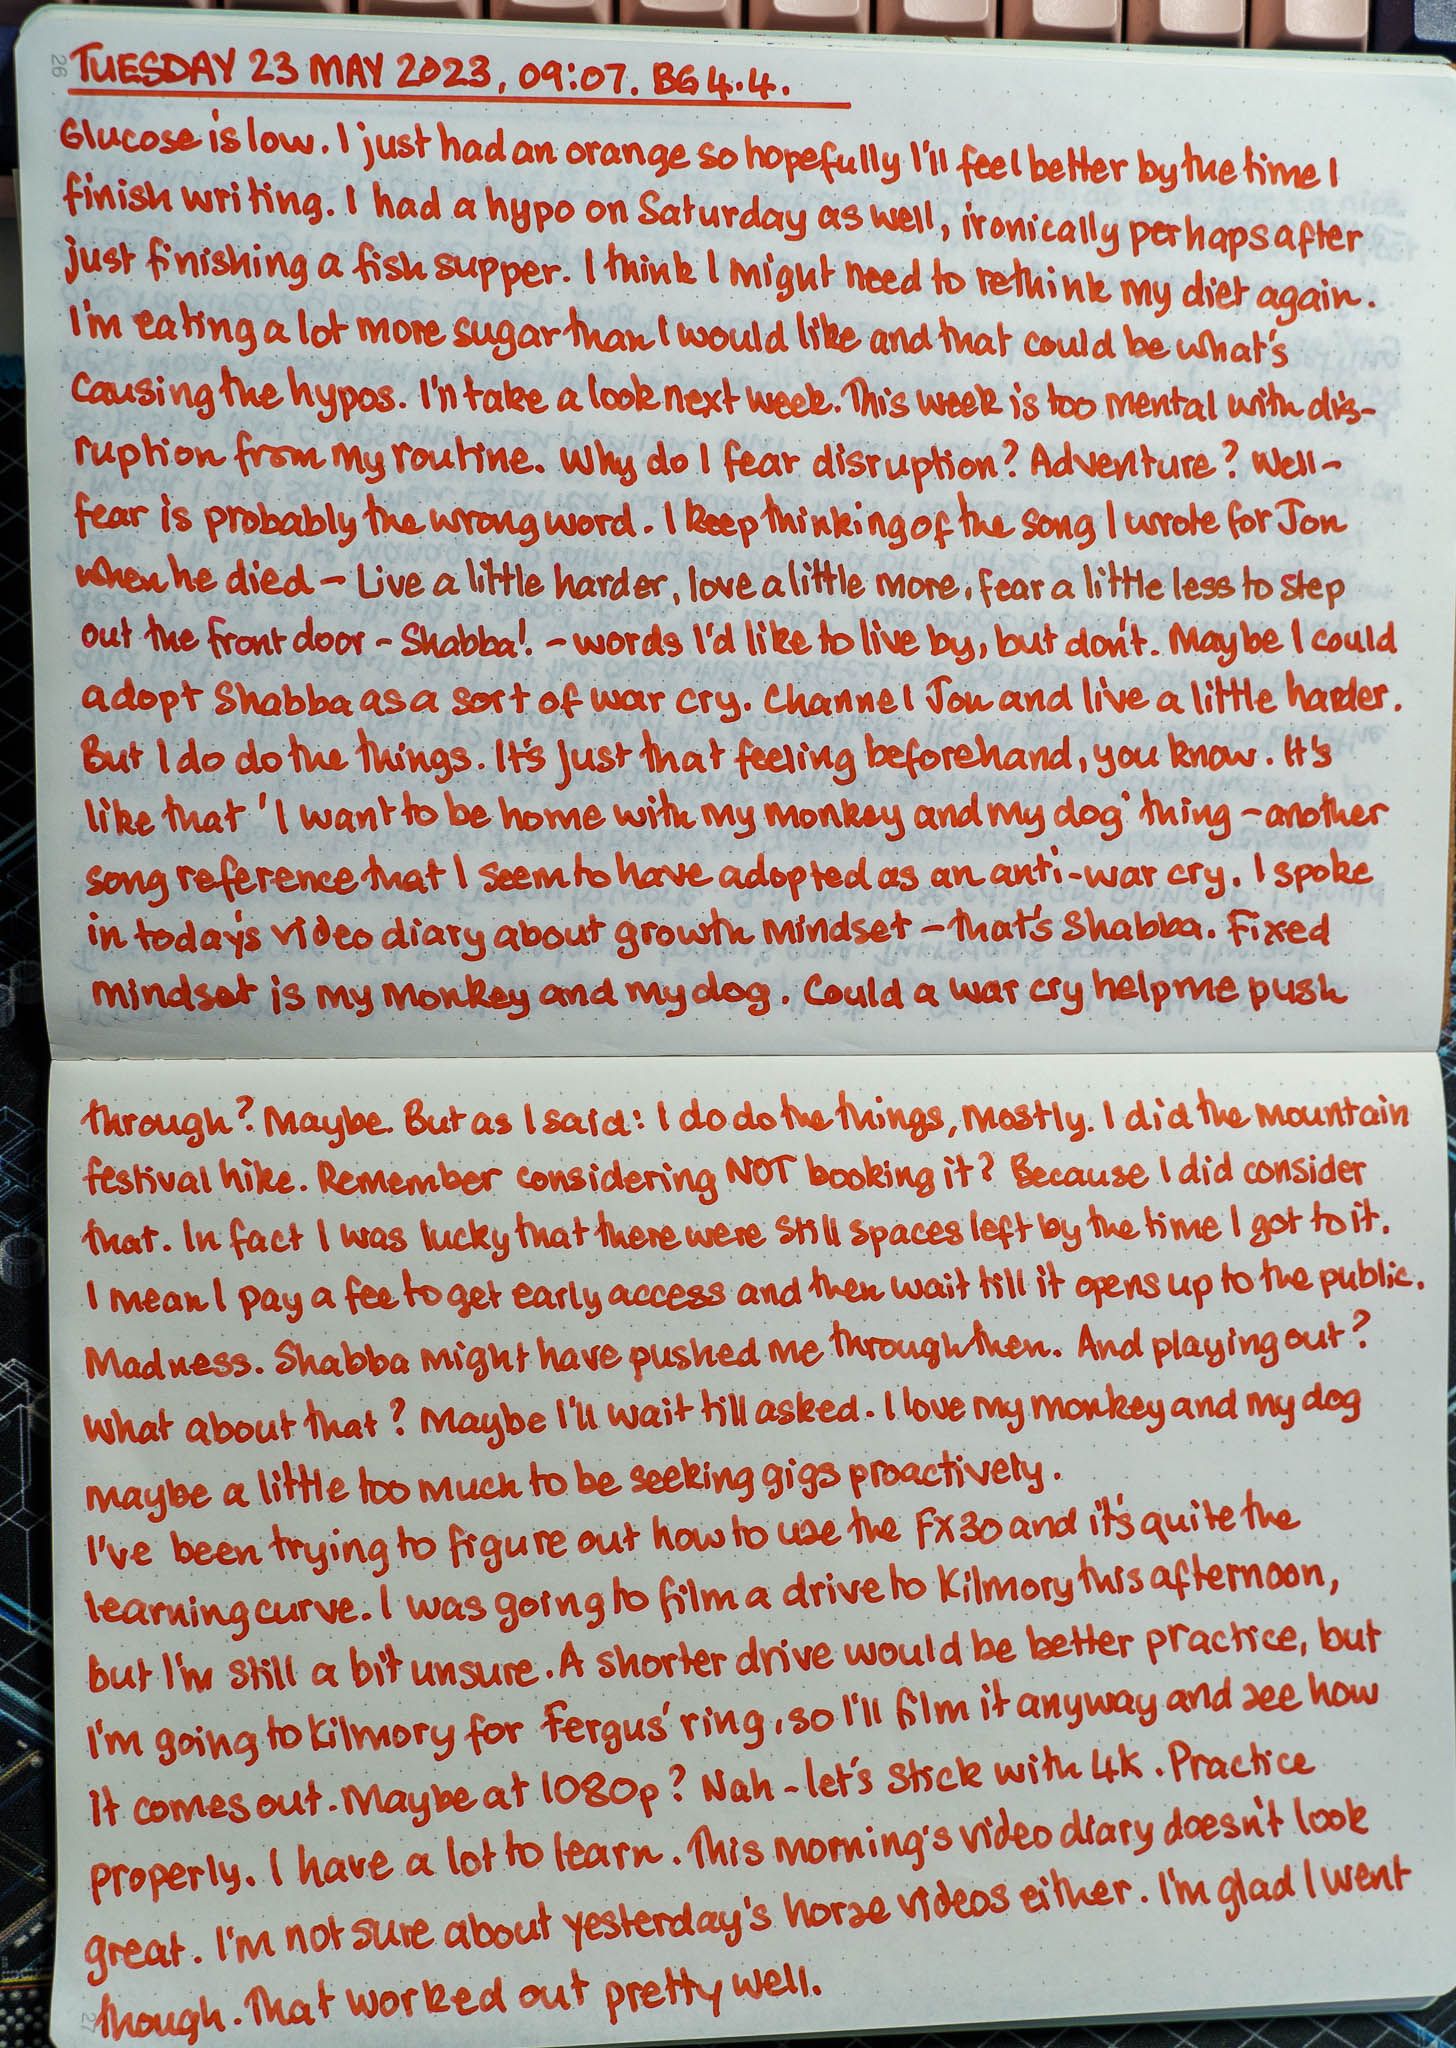 26
TUESDAY 23 MAY 2023, 09:07. BG 4.4.
Glucose is low. I just had an orange so hopefully I'll feel better by the time I
finish writing. I had a hypo on Saturday as well, ironically perhaps after
just finishing a fish supper. I think I might need to rethink my diet again.
I'm eating a lot more sugar than I would like and that could be what's
causing the hypos. I'll take a look next week. This week is too mental with dis-
ruption from my routine. Why do I fear disruption? Adventure? Well-
fear is probably the wrong word. I keep thinking of the song I wrote for Jon
when he died - Live a little harder, love a little more, fear a little less to step
out the front door - Shabba! - words I'd like to live by, but don't. Maybe I could
adopt Shabba as a sort of war cry. Channel Jon and live a little harder.
But I do do the things. It's just that feeling beforehand, you know. It's
like that 'I want to be home with my monkey and my dog' thing - another
song reference that I seem to have adopted as an anti-war cry. I spoke
in today's video diary about growth mindset - that's Shabba. Fixed
mindset is my monkey and my dog. Could a war cry help me push
through? Maybe. But as I said: I do do the things, mostly. I did the mountain
festival hike. Remember considering NOT booking it? Because I did consider
that. In fact I was lucky that there were still spaces left by the time I got to it.
I mean I pay a fee to get early access and then wait till it opens up to the public.
Madness. Shabba might have pushed me through then. And playing out?
What about that? Maybe I'll wait till asked. I love my monkey and my dog
maybe a little too much to be seeking gigs proactively.
I've been trying to figure out how to use the FX30 and it's quite the
learning curve. I was going to film a drive to Kilmory this afternoon,
but I'm still a bit unsure. A shorter drive would be better practice, but
I'm going to Kilmory for Fergus' ring, so I'll film it anyway and see how
it comes out. Maybe at 1080p? Nah - let's stick with 4K. Practice
properly. I have a lot to learn. This morning's video diary doesn't look
great. I'm not sure about yesterday's horse videos either. I'm glad I went
though. That worked out pretty well.
27